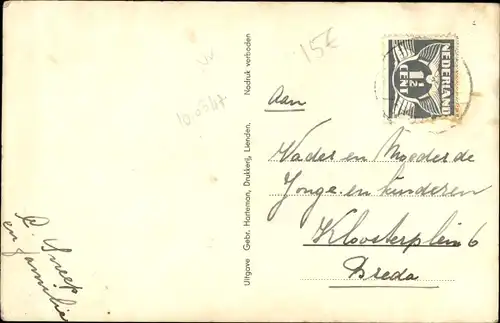 15€
NEDERLAND
1½
CENT
Aan
Vader en Moeder de
Jonge en kinderen
Kloosterplein 6
Breda
Uitgave Gebr. Harteman, Drukkerij, Lienden. Nadruk verboden
en familie